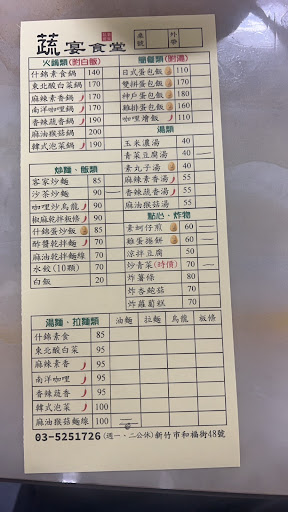 蔬宴食堂
桌號
外帶
火鍋類(附白飯)
什錦素食鍋 140
東北酸白菜鍋 170
麻辣素香鍋 170
南洋咖哩鍋 170
香辣蔬香鍋 190
麻油猴菇鍋 190
韓式泡菜鍋 190
簡餐類(附湯)
日式蛋包飯 110
雙拼蛋包飯 180
神戶蛋包飯 160
雞排蛋包飯 160
咖哩燴飯 110
湯類
玉米濃湯 40
青菜豆腐湯 40
素丸子湯 40
麻辣素香湯 55
香辣蔬香湯 55
麻油猴菇湯 55
炒麵‧飯類
客家炒麵 85
沙茶炒麵 90
咖哩炒烏龍 90
椒麻乾拌粄條 90
什錦蛋炒飯 85
酢醬乾拌麵 70
麻油乾拌麵線 70
水餃(10顆) 70
白飯 20
點心‧炸物
素蚵仔煎 60
雞蛋捲餅 60
涼拌豆腐 50
炒青菜(時價)
炸薯條 50
炸杏鮑菇 50
炸蘿蔔糕 50
湯麵‧拉麵類 油麵 拉麵 烏龍 粄條
什錦素食 85
東北酸白菜 95
麻辣素香 95
南洋咖哩 95
香辣蔬香 95
韓式泡菜 100
麻油猴菇麵線 100
03-5251726(週一‧二公休)新竹市和福街48號